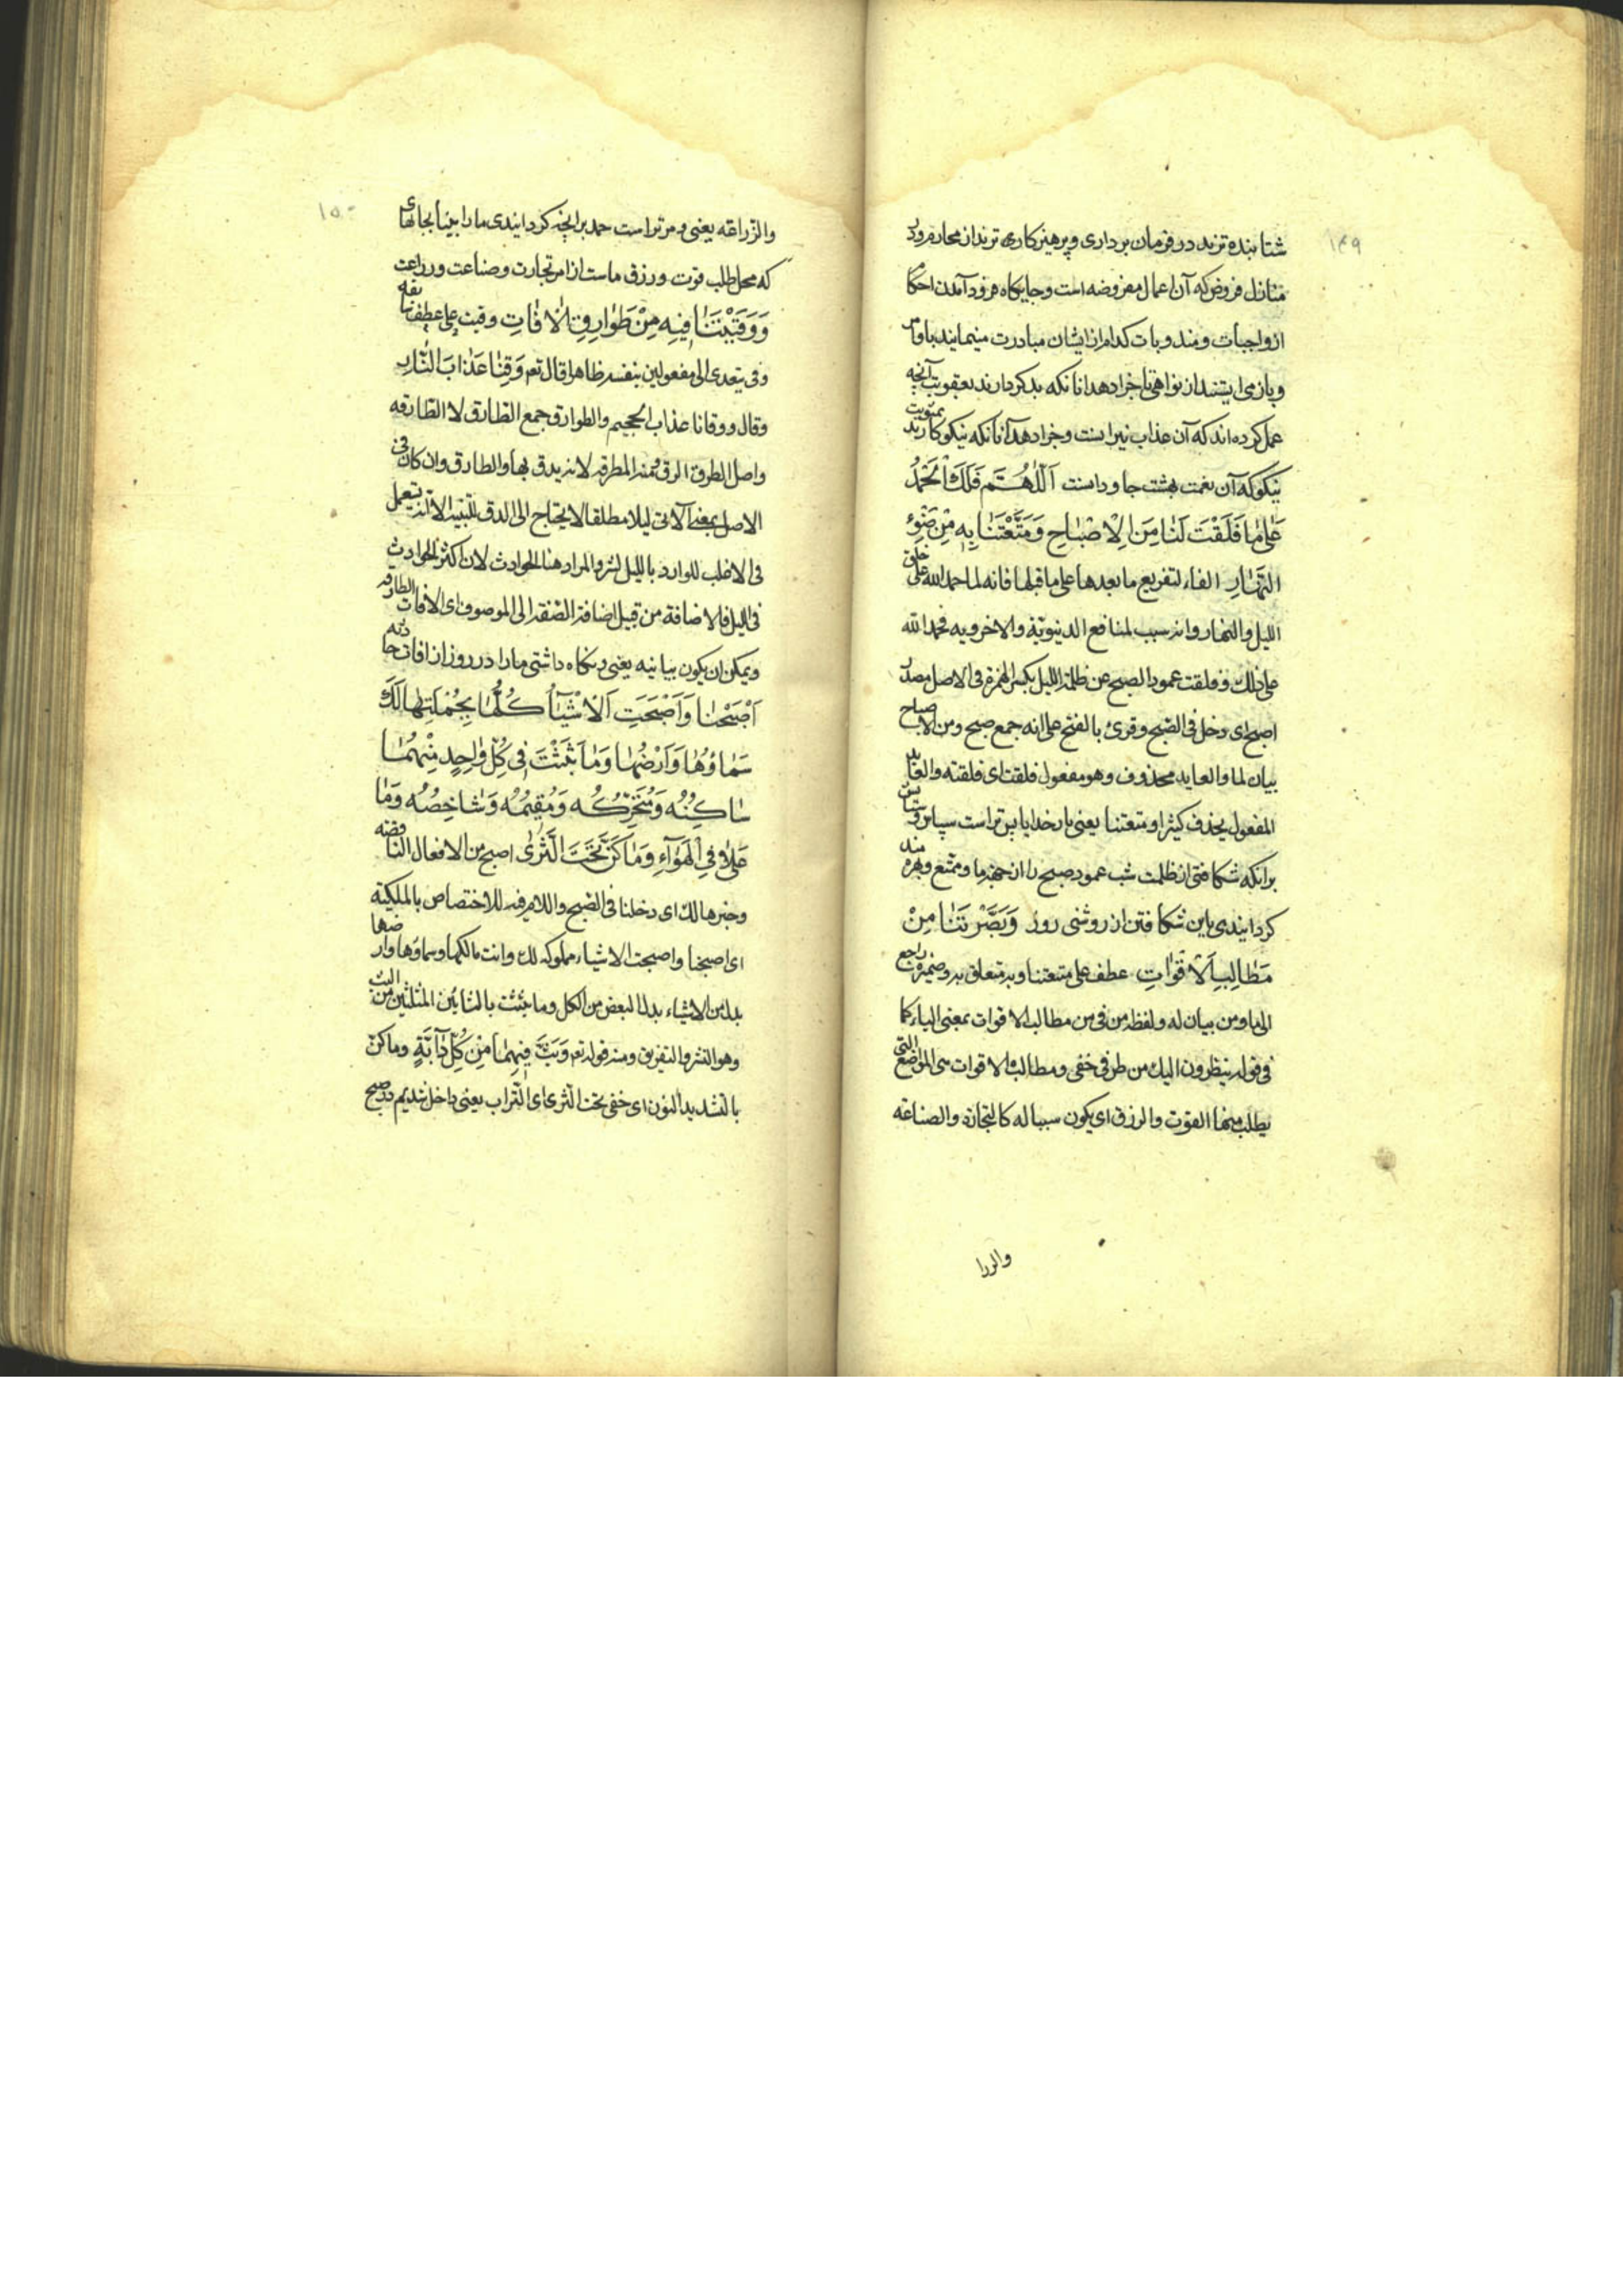 ۱۴۹
شتابنده ترند در فرمان برداری و پرهیزکاری ترند از محارم و در
منازل فروض که آن اعمال مفروضه است و جایگاه فرود آمدن احکام
از واجبات و مندوبات کدام از ایشان مبادرت مینمایند باوامر
و باز می ایستند از نواهی تا جزا دهد انانکه بد کردارند بعقوبت آنچه
عمل کرده اند که آن عذاب نیرانست و جزا دهد آنانکه نیکوکارند بمثوبت
نیکو که آن نعمت بهشت جاودانست اَللّٰهُمَّ فَلَكَ الْحَمْدُ
عَلٰی مَا فَلَقْتَ لَنَا مِنَ الْاِصْبَاحِ وَمَتَّعْتَنَا بِهِ مِنْ ضَوْءِ
النَّهَارِ الفاء لتفریع ما بعدها علی ما قبلها فانه لما حمد الله علی خلق
اللیل والنهار وانه سبب لمنافع الدنیویّة والاخرویه فحمد الله
علی ذلك وفلقت عمود الصبح عن ظلمة اللیل بکسر الهمزة فی الاصل مصدر
اصبح ای دخل فی الصّبح وقرئ بالفتح علی انه جمع صبح ومن الاصباح
بیان لما والعاید محذوف وهو مفعول فلقت ای فلقته والعائد
المفعول یحذف کثیرا ومتعتنا یعنی بار خدایا پس تراست سپاس و ستایش
برانکه شکافتی از ظلمت شب عمود صبح را از جهة ما و متمتع و بهره مند
کردانیدی باین شکافتن از روشنی روز وَبَصَّرْتَنَا مِنْ
مَطَالِبِ الْاَقْوَاتِ عطف علی متعتنا و به متعلق به وضمیره راجع
الی ما ومن بیان له ولفظه من فی من مطالب الاقوات بمعنی الباء کما
فی قوله ینظرون الیك من طرف خفی ومطالب الاقوات هی المواضع التی
یطلب منها القوت والرزق ای یکون سببا له کالتجارة والصناعة
والزرا
۱۵۰
والزّراعة یعنی و مر تراست حمد بر انچه کردانیدی ما را بینا بجاهای
که محل طلب قوت و رزق ماست از امر تجارت و صناعت و زراعت
وَوَقَيْتَنَا فِيهِ مِنْ طَوَارِقِ الْاٰفَاتِ وقیت علی عطف
وقی یتعدی الی مفعولین بنفسه ظاهرا قال تعم وَقِنَا عَذَابَ النَّارِ
وقال ووقانا عذاب الجحیم والطوارق جمع الطّارق لا الطّارقه
واصل الطروق الدق ومنه المطرقه لانه یدق بها والطارق وان کان فی
الاصل بمعنی الآتی لیلا مطلقا لاحتیاج الی الدق للتبییت الا انه یستعمل
فی الاغلب للوارد باللیل لشر والمراد هنا الحوادث لان اکثر الحوادث
فی اللیل فالاضافة من قبیل اضافة الصّفة الی الموصوف ای الافات الطارقه
ویمکن ان یکون بیانیه یعنی و نکاه داشتی ما را در روز از افات حادثه
اَصْبَحْنَا وَاَصْبَحَتِ الْاَشْيَآءُ كُلُّهَا بِجُمْلَتِهَا لَكَ
سَمَاؤُهَا وَاَرْضُهَا وَمَا بَثَثْتَ فِي كُلِّ وَاحِدٍ مِنْهُمَا
سَاكِنُهُ وَمُتَحَرِّكُهُ وَمُقِيمُهُ وَشَاخِصُهُ وَمَا
عَلَا فِي الْهَوَآءِ وَمَا كَنَّ تَحْتَ الثَّرٰى اصبح من الافعال الناقصه
وخبرها لك ای دخلنا فی الصبح واللام فیه للاختصاص بالملکیة
ای اصبحنا واصبحت الاشیاء مملوکه لك وانت مالکها وسماؤها وارضها
بدل من الاشیاء بدل البعض من الکل وما بثثت بالثائین المثلثین من البث
وهو النشر والتفریق ومنه قوله تعم وَبَثَّ فِيهِمَا مِنْ كُلِّ دَآبَّةٍ وما کنّ
بالتشدید النون ای خفی تحت الثری ای التراب یعنی داخل شدیم در صبح